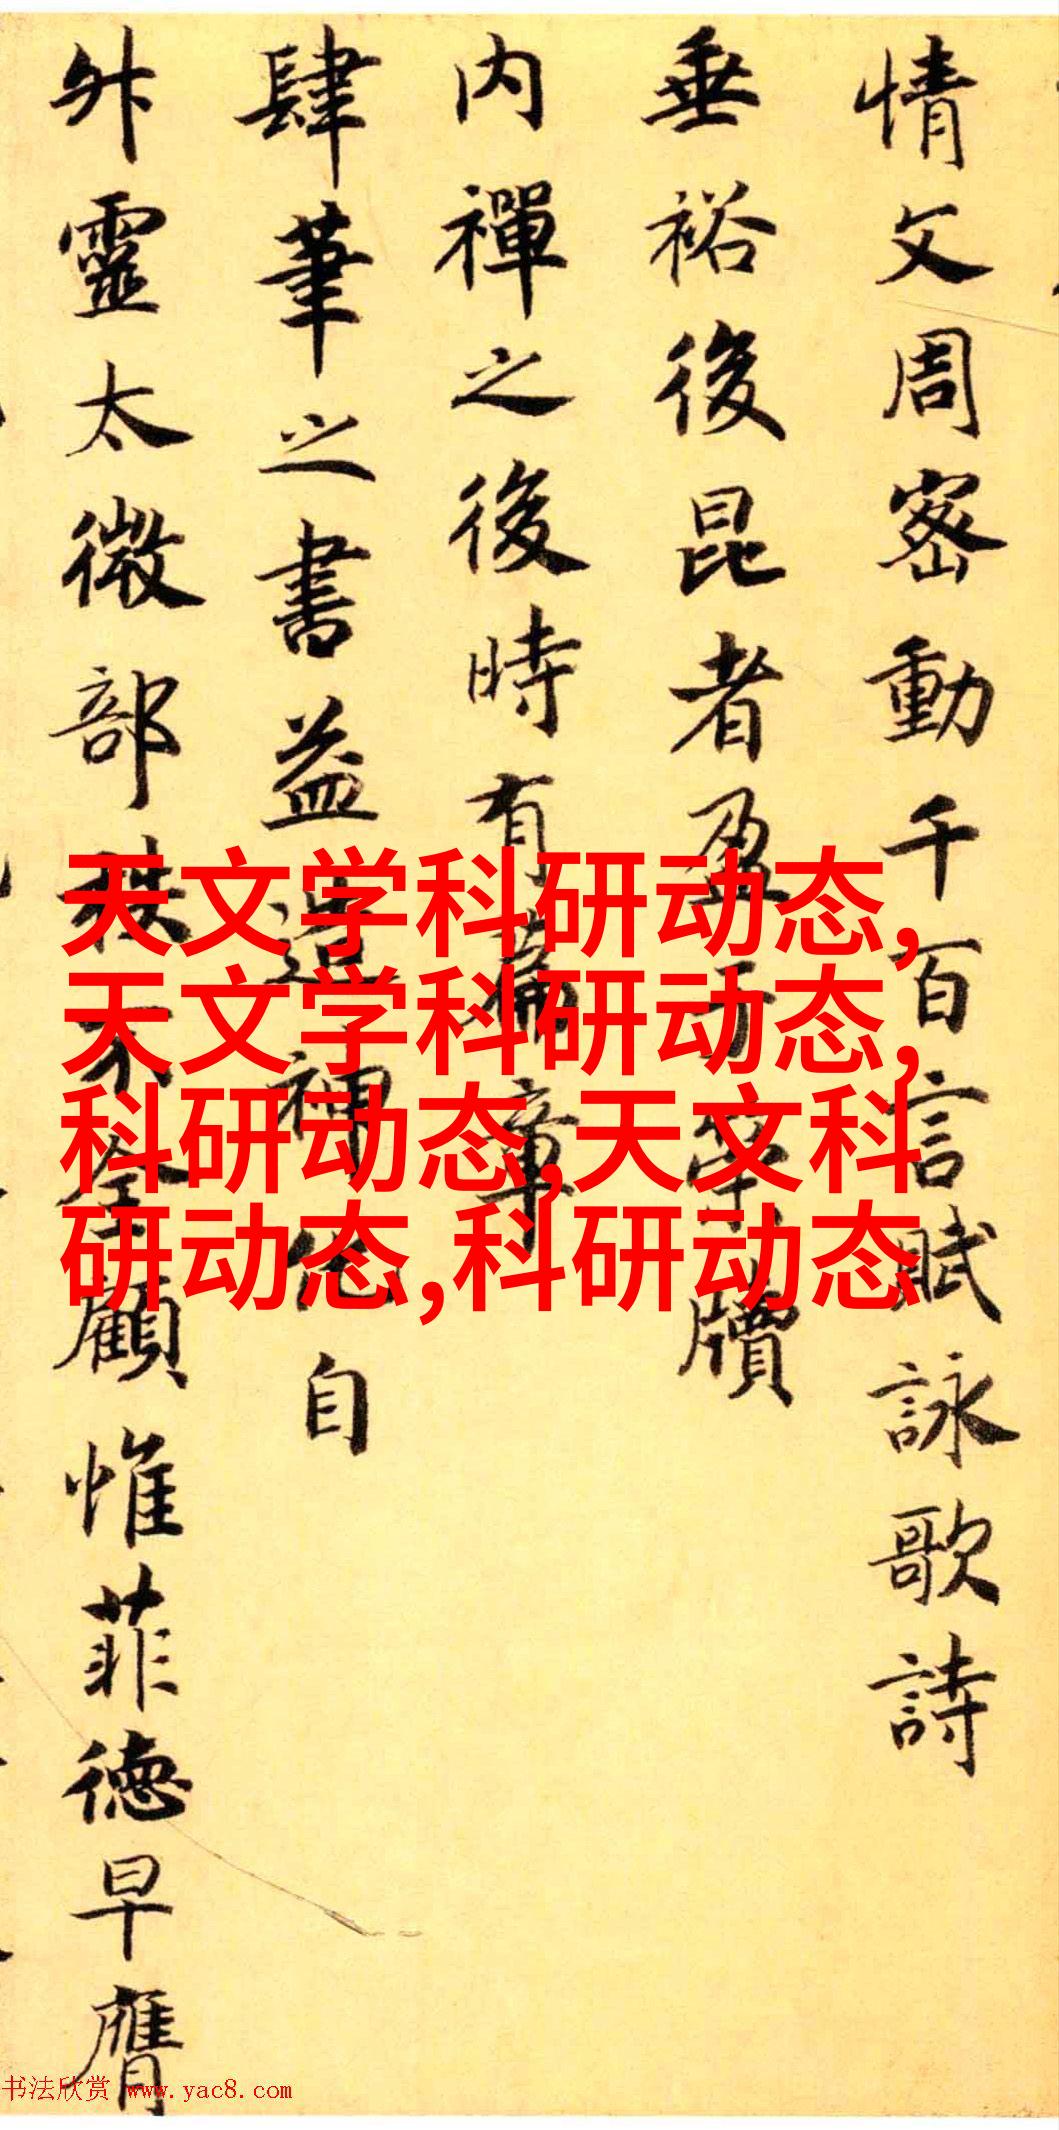 情文周密動千百言賦詠歌詩
垂裕後昆者盈于章牘
内禪之後時有篇章
肆筆之書益造神化自
外靈太微部秩不登顧惟菲德早膺
天文学科研动态,
天文学科研动态,
科研动态,天文科
研动态,科研动态
书法欣赏 www.yac8.com